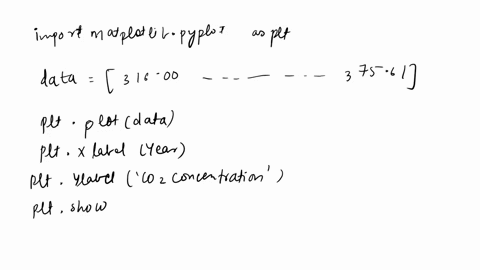 import matplotlib.pyplot as plt
data = [316.00 --- — -- - 375.61]
plt.plot(data)
plt.xlabel(Year)
plt.ylabel('CO2 concentration')
plt.show